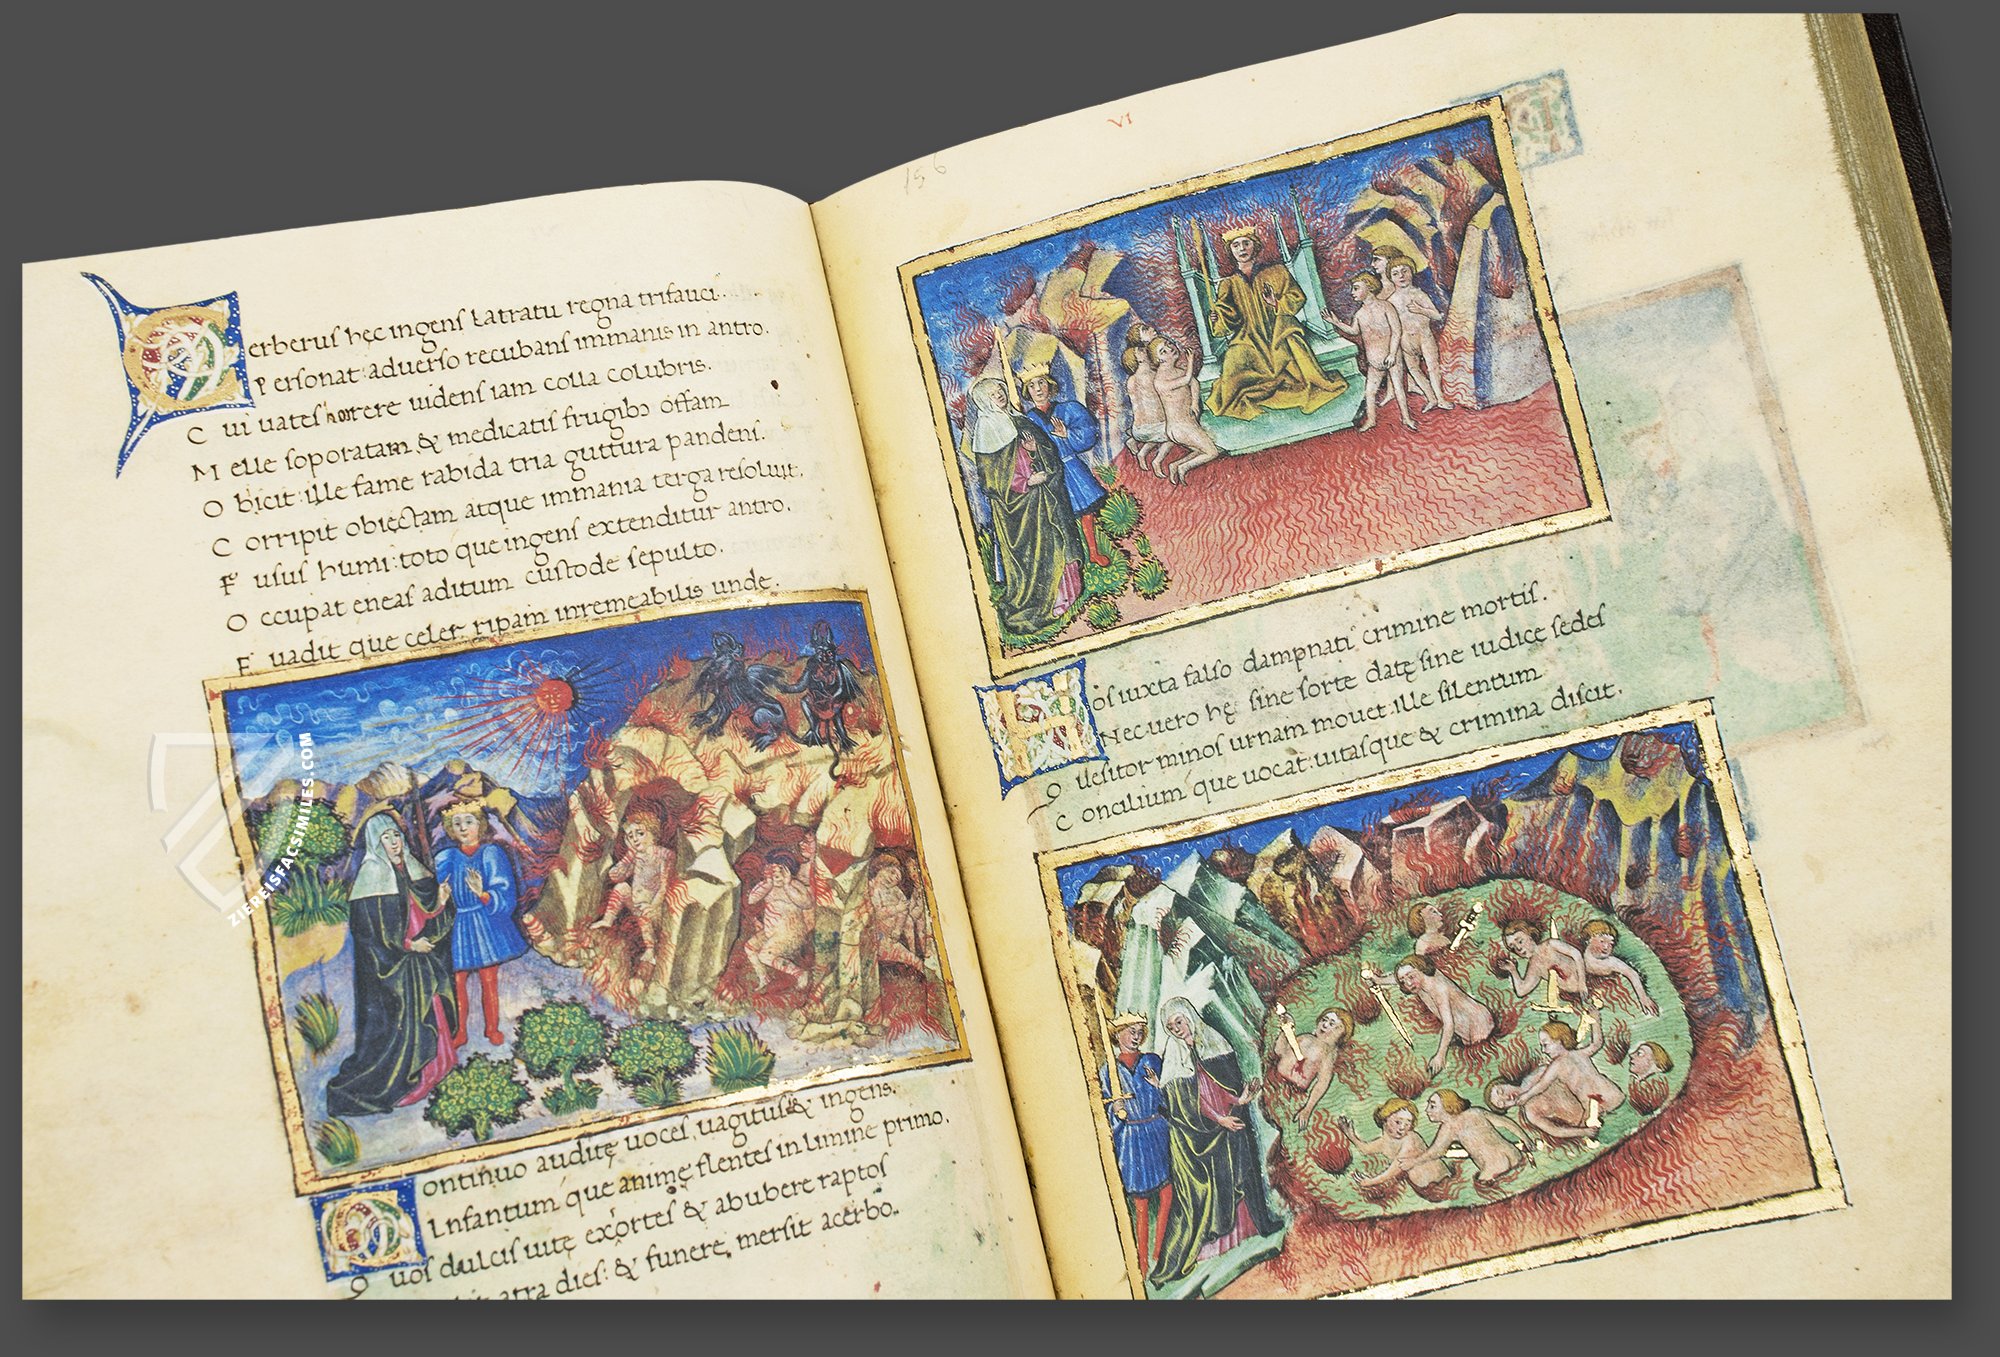 Cerberus hęc ingens latratu regna trifauci.
Personat: aduerso recubans immanis in antro.
Cui uates horrere uidens iam colla colubris.
Melle soporatam & medicatis frugibꝫ offam
Obicit: ille fame rabida tria guttura pandens.
Corripit obiectam atque immania terga resoluit:
Fusus humi: toto que ingens extenditur antro.
Occupat eneas aditum custode sepulto.
Euadit que celer ripam inremeabilis undę.
Continuo auditę uoces, uagitus & ingens.
Infantum que animę flentes in limine primo.
Quos dulcis uitę exortes & abubere raptos
atra dies: & funere mersit acerbo.
VI
156
Hos iuxta falso dampnati crimine mortis.
Nec uero hę sine sorte datę sine iudice sedes
Quesitor minos urnam mouet: ille silentum
Concilium que uocat: uitasque & crimina discit.
ZIEREISFACSIMILES.COM